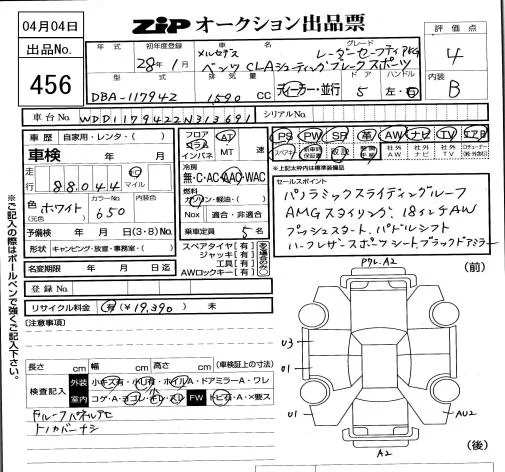 04月04日
ZiP オークション出品票
出品No.
456
年式 初年度登録 車名 グレード
28年1月 メルセデス ベンツ CLAシューティングブレークスポーツ
レーダーセーフティPKG
評価点
4
型式 排気量 ドア ハンドル
DBA-117942 1,590 CC ディーラー・並行 5 左・右
内装
B
車台No. WDD1179422N313691 シリアルNo.
車歴 自家用・レンタ・( )
車検 年 月
走行 88,044 km マイル
色(元色) ホワイト カラーNo. 650 内装色
予備検 年 月 日 (3・8) No.
形状 キャンピング・放送・事務室・( )
名変期限 年 月 日迄
フロア コラム インパネ AT MT 速
冷房
無・C・AC・AAC・WAC
燃料
ガソリン・軽油・( )
Nox 適合・非適合
乗車定員 5 名
スペアタイヤ{有}
ジャッキ{有}
工具{有}
AWロックキー{有}
PS PW SR 革 AW ナビ TV エアB
スペアキー 新車時保証書 取説 社外AW 社外ナビ 社外TV
*上記太枠内は標準装備品
セールスポイント
パノラミックスライディングルーフ
AMGスタイリング、18インチAW
プッシュスタート、パドルシフト
ハーフレザースポーツシート、ブラックドアミラー
登録No.
リサイクル料金 有 (¥19,390) 未
[注意事項]
長さ cm 幅 cm 高さ cm (車検証上の寸法)
検査記入 外装 小キズ有・小凹有・ホイルA・ドアミラーA・ワレ
室内 コゲ・A・ヨゴレ・キレ・スレ FW トビ石・A・×要ス
トノカバーナシ
※ご記入の際はボールペンで強くご記入下さい。
(前)
A2
U3
U1
U1
AU2
A2
(後)